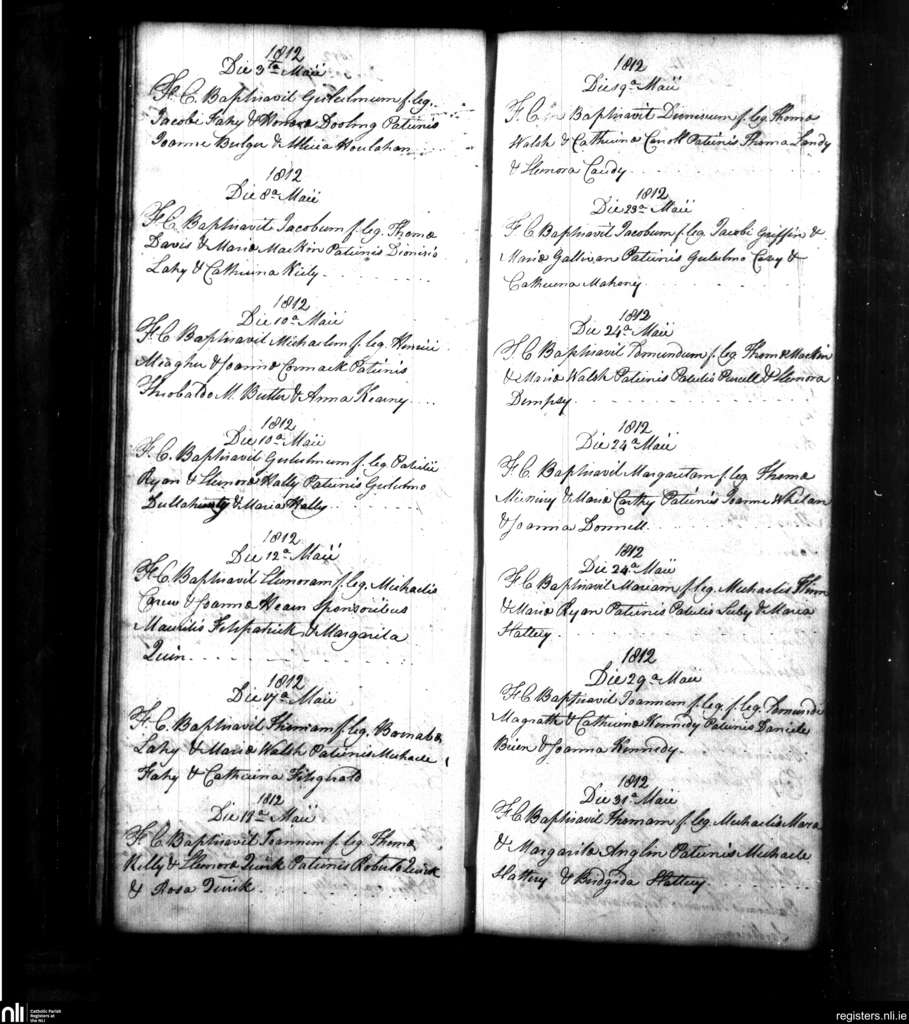 1812
Die 3ta Maii
F. C. Baptisavit Gulielmum f. leg.
Jacobi Fahy & Honora Dooling Patrinis
Joanne Bulger & Alicia Houlahan
1812
Die 8a Maii
F. C. Baptisavit Jacobum f. leg. Thoma
Davis & Maria Mackin Patrinis Dionisio
Lahy & Catharina Kiely
1812
Die 10a Maii
F. C. Baptisavit Michaelem f. leg. Henrici
Meagher & Joanna Cormack Patrinis
Theobaldo M. Butler & Anna Kearny
1812
Die 10a Maii
F. C. Baptisavit Gulielmum f. leg. Patritii
Ryan & Elenora Hally Patrinis Gulielmo
& Maria Hally
1812
Die 12a Maii
F. C. Baptisavit Elenoram f. leg. Michaelis
Carew & Joanna Hearn Sponsoribus
Mauritio Fitzpatrick & Margarita
Quin
1812
Die 17a Maii
F. C. Baptisavit Thomam f. leg. Barnaba
Lahy & Maria Walsh Patrinis Michaele
Fahy & Catharina Fitzgerald
1812
Die Maii
F. C. Baptisavit Joannem f. leg. Thoma
Kelly & Elenora Quirk Patrinis Roberto Quirk
& Rosa Quirk
1812
Die 19a Maii
F. C. Baptisavit f. leg. Thoma
Walsh & Catharina Patrinis Thoma Landy
& Elenora
1812
Die 23a Maii
F. C. Baptisavit Jacobum f. leg. Jacobi Griffin &
Maria Gallivan Patrinis Gulielmo Casey &
Catharina Mahony
1812
Die 24a Maii
F. C. Baptisavit Edmundum f. leg. Thoma Mackin
& Maria Walsh Patrinis Patritio Purcell & Elenora
Dempsy
1812
Die 24a Maii
F. C. Baptisavit Margaritam f. leg. Thoma
& Maria Carthy Patrinis Joanne Whelan
& Joanna Donnell
1812
Die 24a Maii
F. C. Baptisavit Mariam f. leg. Michaelis
& Maria Ryan Patrinis Patritio & Maria
Slattery
1812
Die 29a Maii
F. C. Baptisavit Joannem f. leg. f. leg. Edmundi
Magrath & Catharina Kennedy Patrinis Daniele
Brien & Joanna Kennedy
1812
Die 31a Maii
F. C. Baptisavit Thomam f. leg. Michaelis Mara
& Margarita Anglin Patrinis Michaele
Slattery & Bridgida Slattery
nli
Catholic Parish
Registers at
the NLI
registers.nli.ie